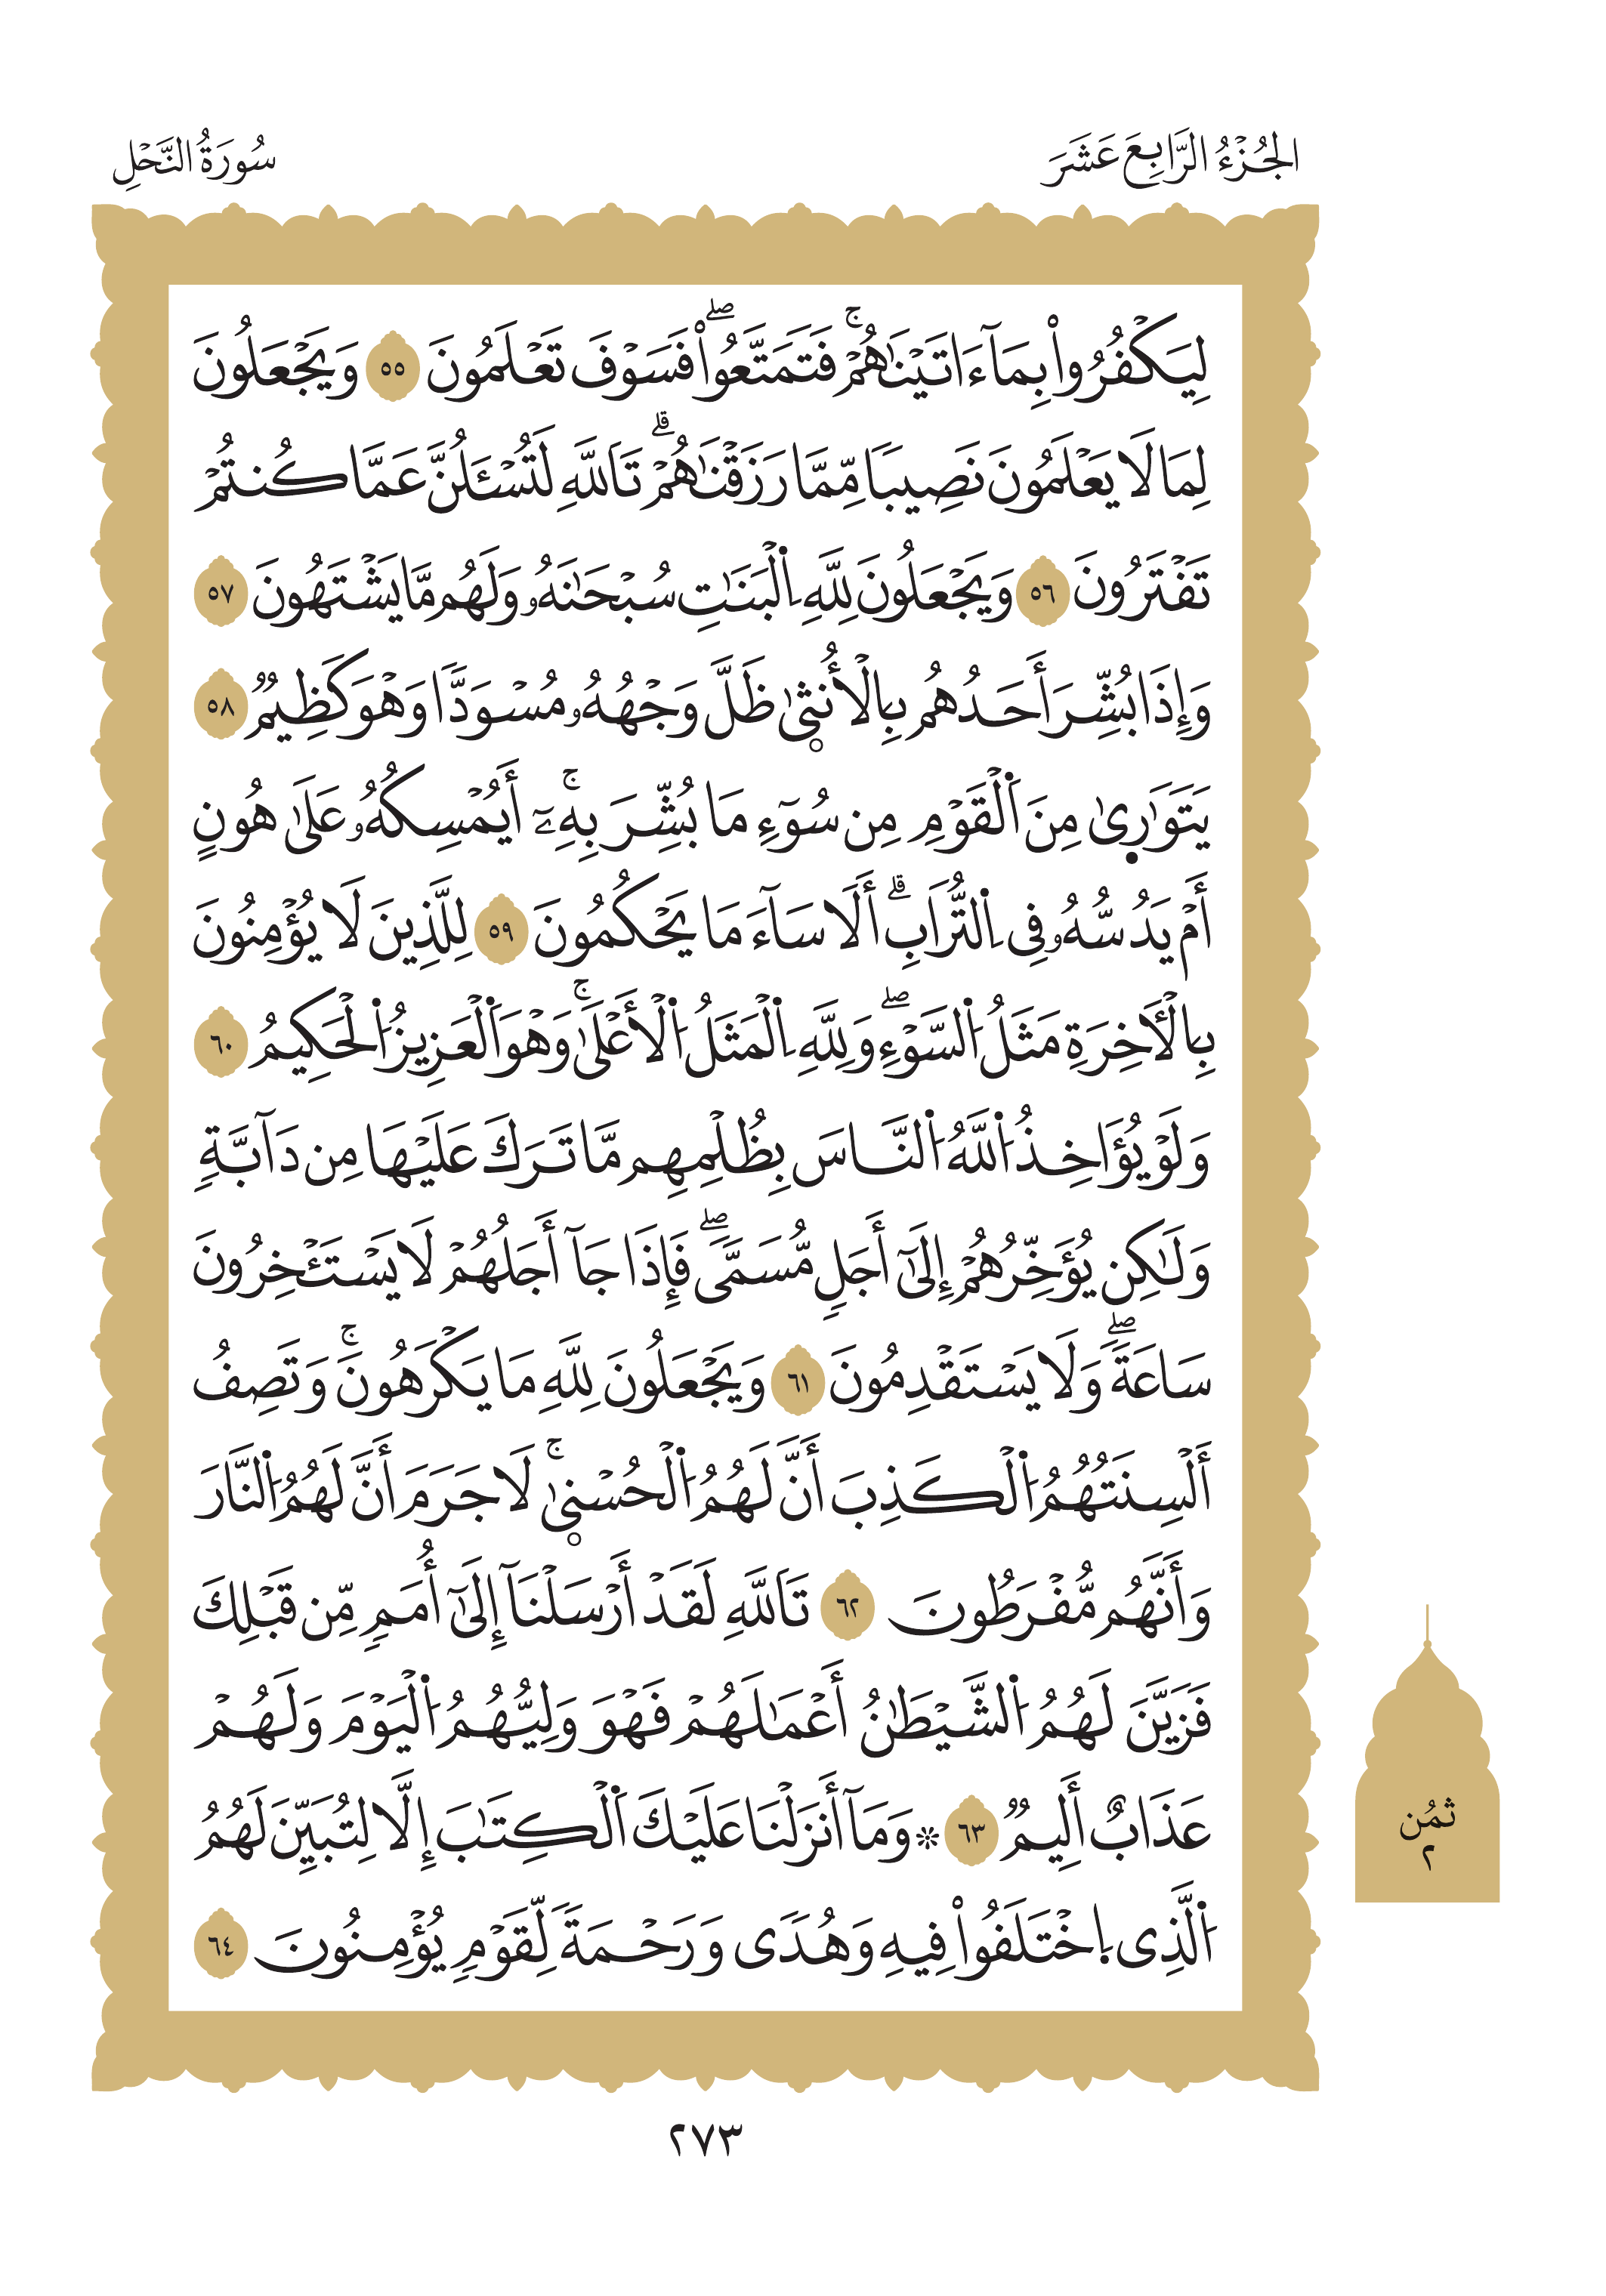 الجُزْءُ الرَّابِعَ عَشَرَ
سُورَةُ النَّحْلِ
لِيَكْفُرُواْ بِمَآ ءَاتَيْنَٰهُمْۚ فَتَمَتَّعُواْۖ فَسَوْفَ تَعْلَمُونَ ٥٥ وَيَجْعَلُونَ
لِمَا لَا يَعْلَمُونَ نَصِيبًا مِّمَّا رَزَقْنَٰهُمْۗ تَاَللَّهِ لَتُسْـَٔلُنَّ عَمَّا كُنتُمْ
تَفْتَرُونَ ٥٦ وَيَجْعَلُونَ لِلَّهِ اِ۬لْبَنَٰتِ سُبْحَٰنَهُۥ وَلَهُم مَّا يَشْتَهُونَ ٥٧
وَإِذَا بُشِّرَ أَحَدُهُم بِالْأُنث۪ىٰ ظَلَّ وَجْهُهُۥ مُسْوَدًّا وَهْوَ كَظِيمٌ ٥٨
يَتَوَٰر۪ىٰ مِنَ اَ۬لْقَوْمِ مِن سُوٓءِ مَا بُشِّرَ بِهِۦٓۚ أَيُمْسِكُهُۥ عَلَىٰ هُونٍ
أَمْ يَدُسُّهُۥ فِى اِ۬لتُّرَابِۗ أَلَا سَآءَ مَا يَحْكُمُونَ ٥٩ لِلَّذِينَ لَا يُؤْمِنُونَ
بِالْأٓخِرَةِ مَثَلُ اُ۬لسَّوْءِۖ وَلِلَّهِ اِ۬لْمَثَلُ اُ۬لْأَعْلَىٰۚ وَهْوَ اَ۬لْعَزِيزُ اُ۬لْحَكِيمُ ٦٠
وَلَوْ يُؤَاخِذُ اُ۬للَّهُ اُ۬لنَّاسَ بِظُلْمِهِم مَّا تَرَكَ عَلَيْهَا مِن دَآبَّةٍ
وَلَٰكِن يُؤَخِّرُهُمْ إِلَىٰٓ أَجَلٍ مُّسَمًّىۖ فَإِذَا جَآ أَجَلُهُمْ لَا يَسْتَـْٔخِرُونَ
سَاعَةًۖ وَلَا يَسْتَقْدِمُونَ ٦١ وَيَجْعَلُونَ لِلَّهِ مَا يَكْرَهُونَۚ وَتَصِفُ
أَلْسِنَتُهُمُ اُ۬لْكَذِبَ أَنَّ لَهُمُ اُ۬لْحُسْن۪ىٰۚ لَا جَرَمَ أَنَّ لَهُمُ اُ۬لنَّارَ
وَأَنَّهُم مُّفْرَطُونَ ٦٢ تَاَللَّهِ لَقَدْ أَرْسَلْنَآ إِلَىٰٓ أُمَمٍ مِّن قَبْلِكَ
فَزَيَّنَ لَهُمُ اُ۬لشَّيْطَٰنُ أَعْمَٰلَهُمْ فَهْوَ وَلِيُّهُمُ اُ۬لْيَوْمَ وَلَهُمْ
عَذَابٌ أَلِيمٌ ٦٣ ۞ وَمَآ أَنزَلْنَا عَلَيْكَ اَ۬لْكِتَٰبَ إِلَّا لِتُبَيِّنَ لَهُمُ
اُ۬لَّذِى اِ۪خْتَلَفُواْ فِيهِ وَهُدًى وَرَحْمَةً لِّقَوْمٍ يُؤْمِنُونَ ٦٤
ثُمُن
٢
٢٧٣